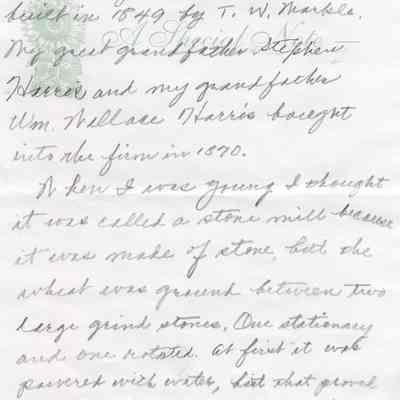 built in 1849 by T. W. Markle.
A Special Note
My great grandfather Stephen
Harris and my grandfather
Wm. Wallace Harris bought
into the firm in 1870.
When I was young I thought
it was called a stone mill because
it was made of stone, but the
wheat was ground between two
large grind stones. One stationary
and one rotated. At first it was
powered with water, but that proved